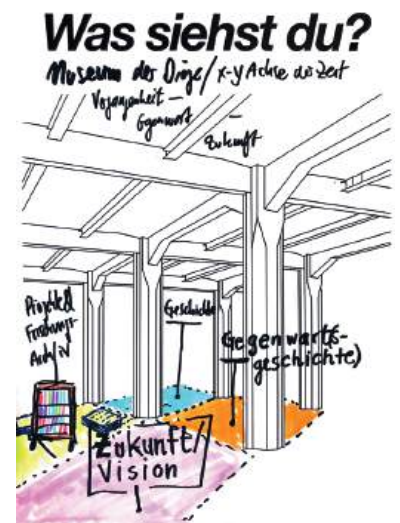 Was siehst du?
Museum der Dinge/x-y Achse der Zeit
Vergangenheit –
Gegenwart –
Zukunft
Projekte
Forschungs-
Archiv
Geschichte
Gegenwarts-
geschichte)
Zukunft/
Vision